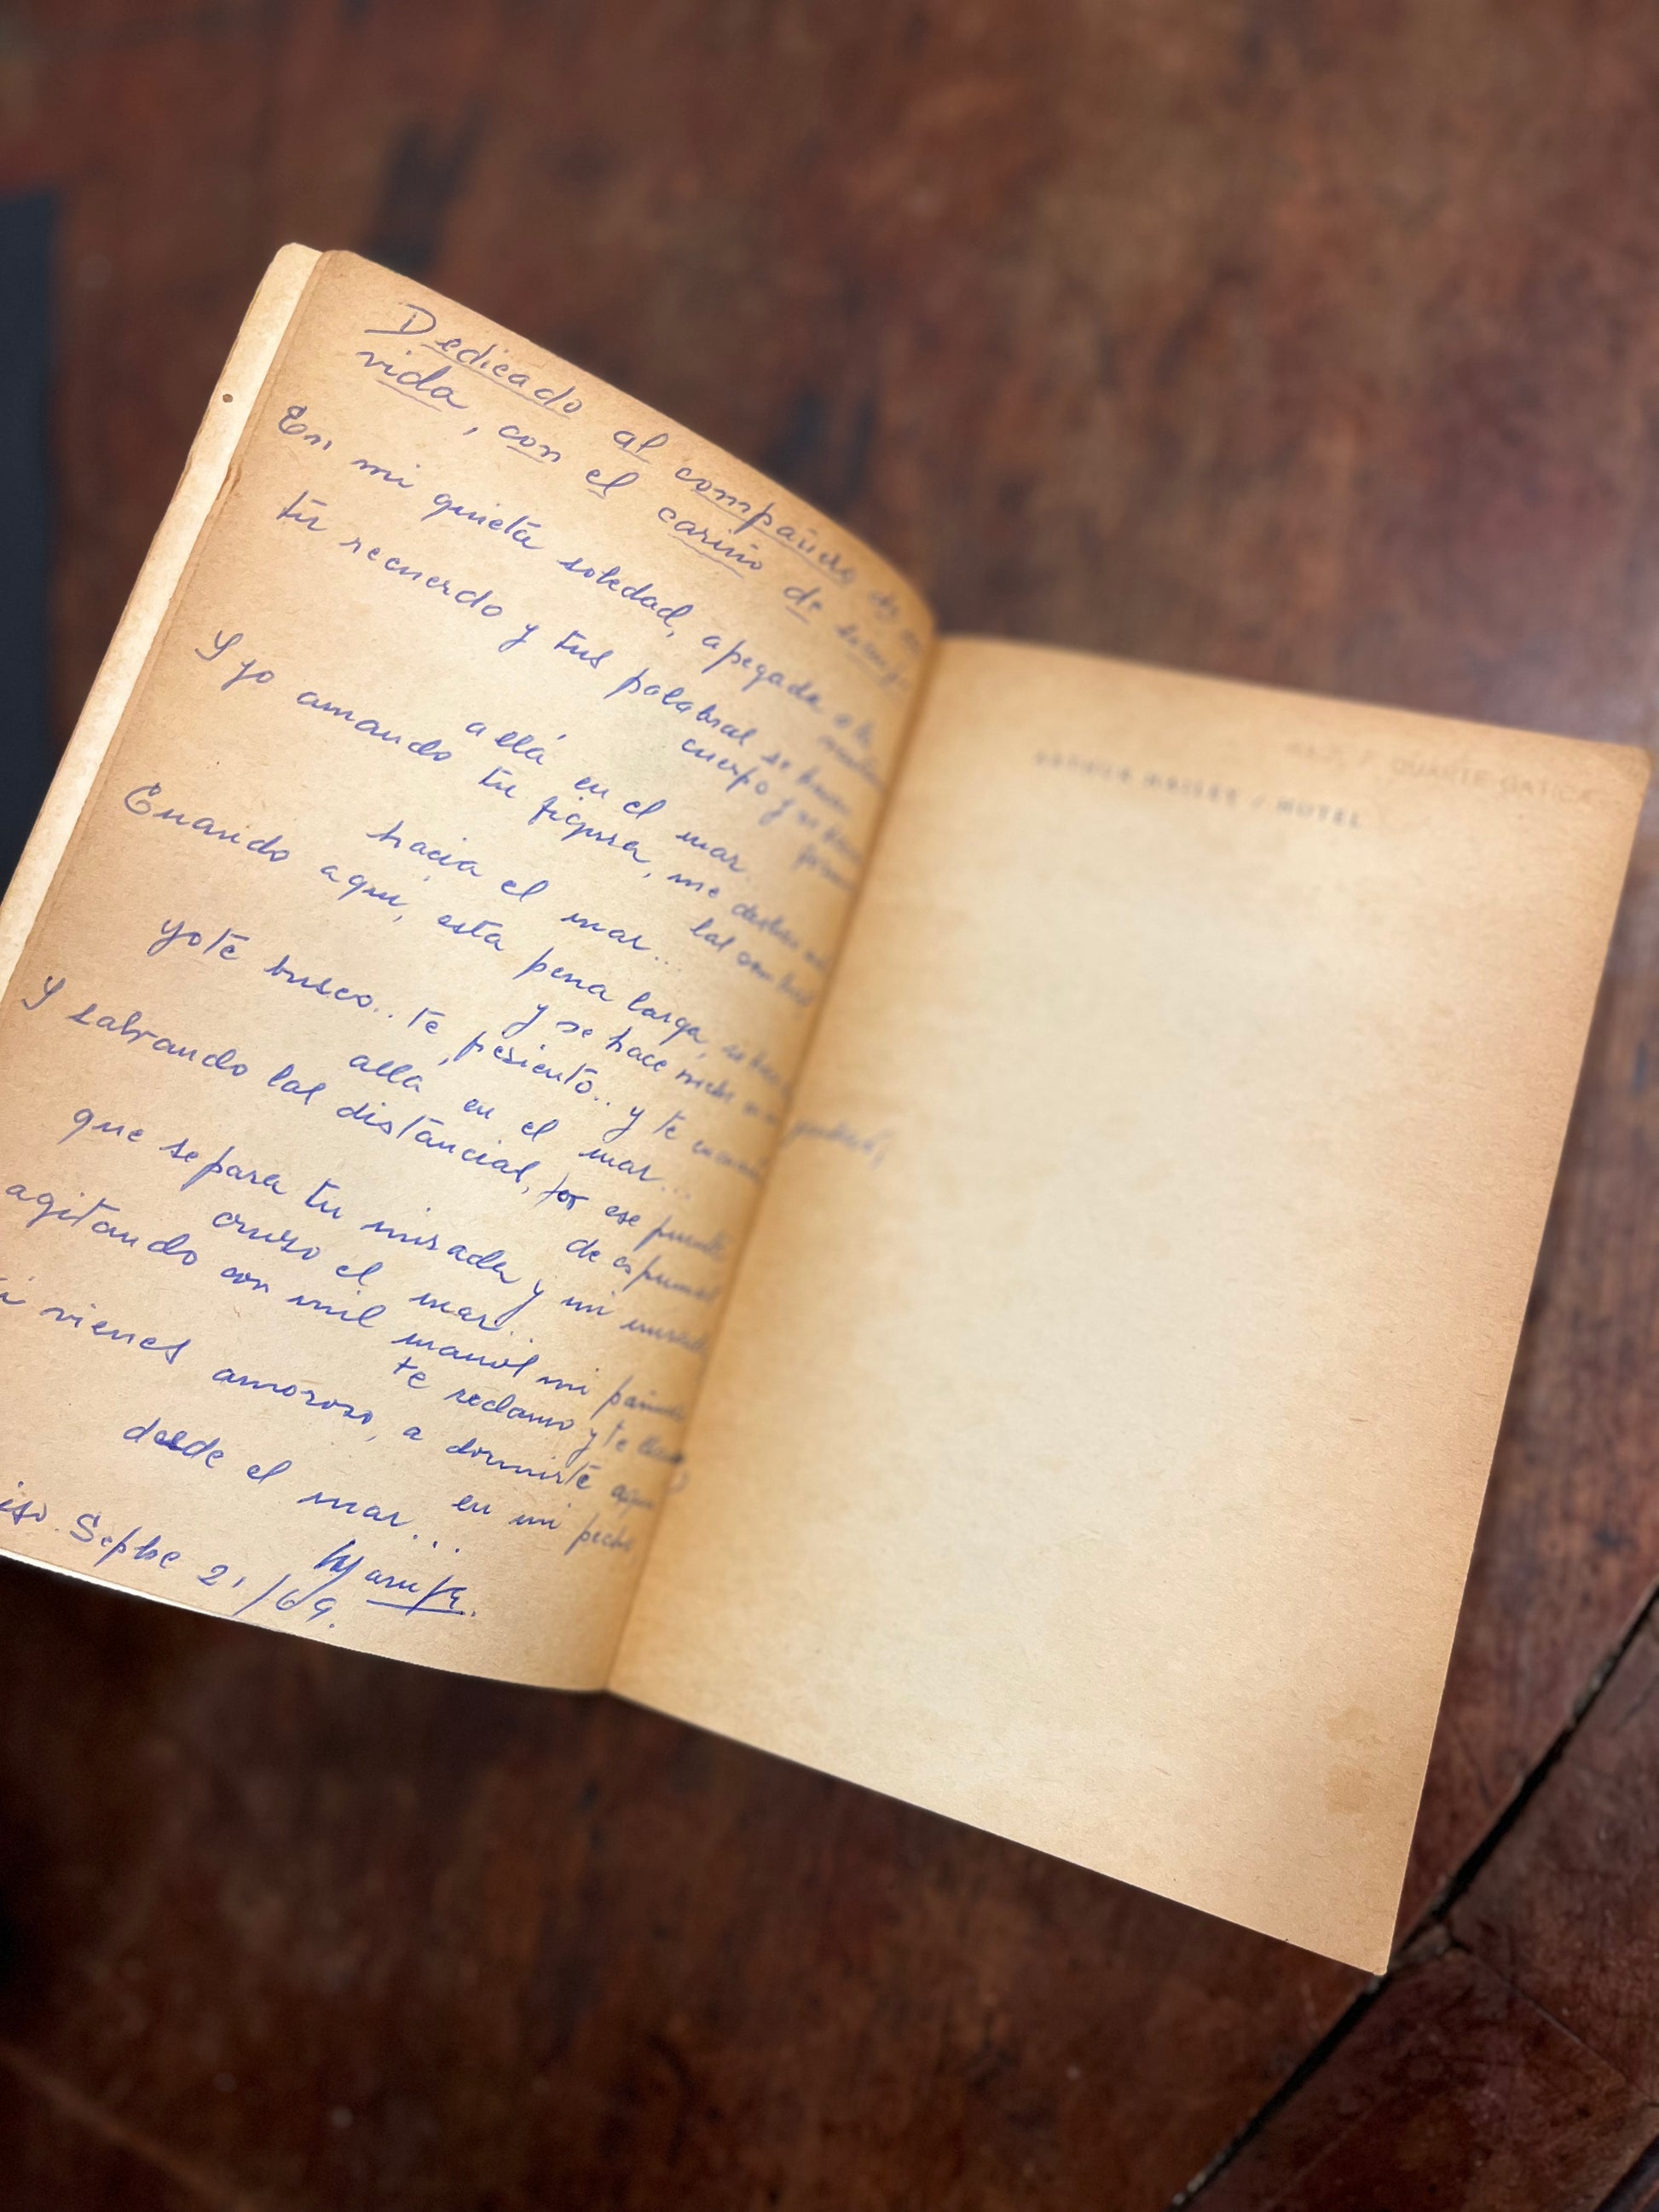 Dedicado al compañero de mi
vida, con el cariño de siempre
En mi quieta soledad, apegada a la
tu recuerdo y tus palabras se hacen
cuerpo y se hacen
allá en el mar.
Y yo amando tu figura, me desbro
las
hacia el mar...
Cuando aquí, esta pena larga, se hace
y se hace noche
yo te busco.. te presiento.. y te
alla en el mar...
Y salvando las distancias, por ese puente
de espumas
que separa tu mirada y mi mirada
cruzo el mar...
agitando con mil manos mi pañuelo
te reclamo y te llamo
vienes amoroso, a dormirte aquí
en mi pecho
desde el mar...
iso. Sepbe 2, /69.
HOTEL
DUARTE GATICA